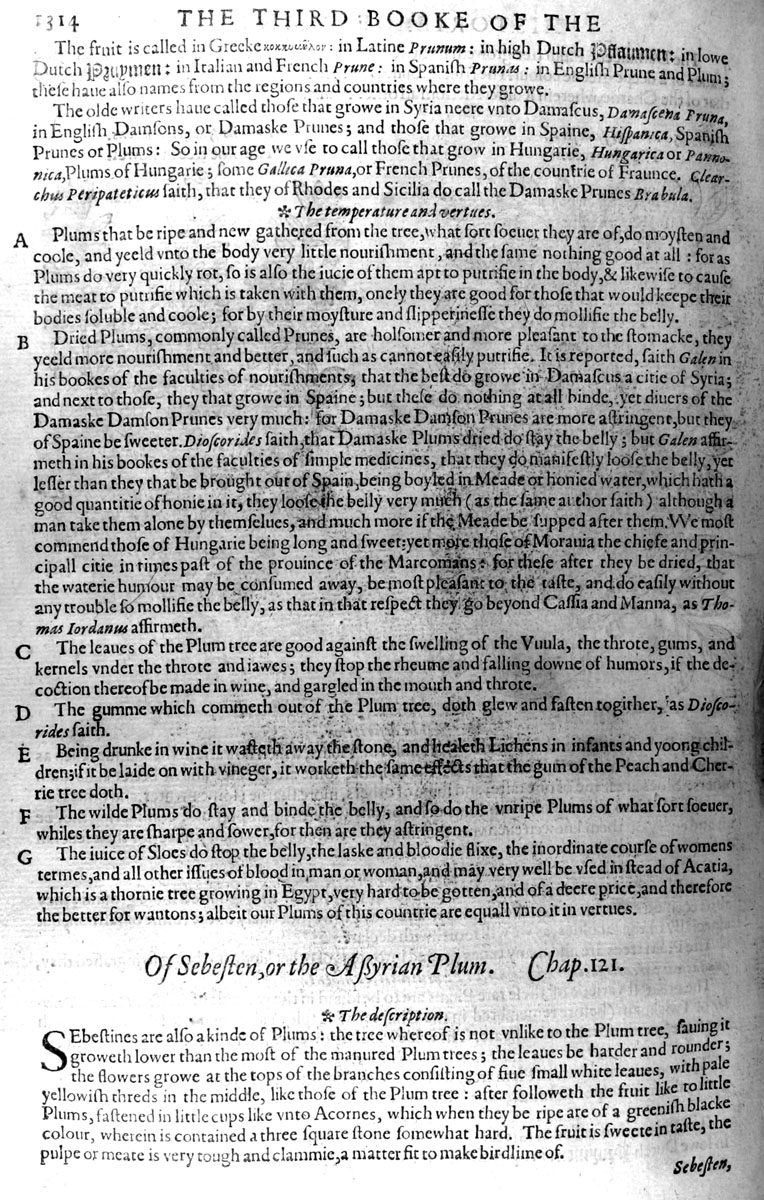 1314 THE THIRD BOOKE OF THE
The fruit is called in Greeke κοκκυμηλον: in Latine Prunum: in high Dutch Pflaumen: in lowe
Dutch Pruymen: in Italian and French Prune: in Spaniſh Prunas: in Engliſh Prune and Plum;
theſe haue alſo names from the regions and countries where they growe.
The olde writers haue called thoſe that growe in Syria neere vnto Damaſcus, Damaſcena Pruna,
in Engliſh Damſons, or Damaske Prunes; and thoſe that growe in Spaine, Hiſpanica, Spaniſh
Prunes or Plums: So in our age we vſe to call thoſe that grow in Hungarie, Hungarica or Panno-
nica, Plums of Hungarie; ſome Gallica Pruna, or French Prunes, of the countrie of Fraunce. Clear-
chus Peripateticus ſaith, that they of Rhodes and Sicilia do call the Damaske Prunes Brabula.
❧ The temperature and vertues.
A Plums that be ripe and new gathered from the tree, what ſort ſoeuer they are of, do moyſten and
coole, and yeeld vnto the body very little nouriſhment, and the ſame nothing good at all: for as
Plums do very quickly rot, ſo is alſo the iucie of them apt to putrifie in the body, & likewiſe to cauſe
the meat to putrifie which is taken with them, onely they are good for thoſe that would keepe their
bodies ſoluble and coole; for by their moyſture and ſlipperineſſe they do mollifie the belly.
B Dried Plums, commonly called Prunes, are holſomer and more pleaſant to the ſtomacke, they
yeeld more nouriſhment and better, and ſuch as cannot eaſily putrifie. It is reported, ſaith Galen in
his bookes of the faculties of nouriſhments, that the beſt do growe in Damaſcus a citie of Syria;
and next to thoſe, they that growe in Spaine; but theſe do nothing at all binde, yet diuers of the
Damaske Damſon Prunes very much: for Damaske Damſon Prunes are more aſtringent, but they
of Spaine be ſweeter. Dioſcorides ſaith, that Damaske Plums dried do ſtay the belly; but Galen affir-
meth in his bookes of the faculties of ſimple medicines, that they do manifeſtly looſe the belly, yet
leſſer than they that be brought out of Spain, being boyled in Meade or honied water, which hath a
good quantitie of honie in it, they looſe the belly very much (as the ſame author ſaith) although a
man take them alone by themſelues, and much more if the Meade be ſupped after them. We moſt
commend thoſe of Hungarie being long and ſweet: yet more thoſe of Morauia the chiefe and prin-
cipall citie in times paſt of the prouince of the Marcomans: for theſe after they be dried, that
the waterie humour may be conſumed away, be moſt pleaſant to the taſte, and do eaſily without
any trouble ſo mollifie the belly, as that in that reſpect they go beyond Caſſia and Manna, as Tho-
mas Iordanus affirmeth.
C The leaues of the Plum tree are good againſt the ſwelling of the Vuula, the throte, gums, and
kernels vnder the throte and iawes; they ſtop the rheume and falling downe of humors, if the de-
coction thereof be made in wine, and gargled in the mouth and throte.
D The gumme which commeth out of the Plum tree, doth glew and faſten togither, as Dioſco-
rides ſaith.
E Being drunke in wine it waſteth away the ſtone, and healeth Lichens in infants and yoong chil-
dren; if it be laide on with vineger, it worketh the ſame effects that the gum of the Peach and Cher-
rie tree doth.
F The wilde Plums do ſtay and binde the belly, and ſo do the vnripe Plums of what ſort ſoeuer,
whiles they are ſharpe and ſower, for then are they aſtringent.
G The iuice of Sloes do ſtop the belly, the laske and bloodie flixe, the inordinate courſe of womens
termes, and all other iſſues of blood in man or woman, and may very well be vſed in ſtead of Acatia,
which is a thornie tree growing in Egypt, very hard to be gotten, and of a deere price, and therefore
the better for wantons; albeit our Plums of this countrie are equall vnto it in vertues.
Of Sebeſten, or the Aßyrian Plum. Chap. 121.
❧ The deſcription.
SEbeſtines are alſo a kinde of Plums: the tree whereof is not vnlike to the Plum tree, ſauing it
groweth lower than the moſt of the manured Plum trees; the leaues be harder and rounder;
the flowers growe at the tops of the branches conſiſting of fiue ſmall white leaues, with pale
yellowiſh threds in the middle, like thoſe of the Plum tree: after followeth the fruit like to little
Plums, faſtened in little cups like vnto Acornes, which when they be ripe are of a greeniſh blacke
colour, wherein is contained a three ſquare ſtone ſomewhat hard. The fruit is ſweete in taſte, the
pulpe or meate is very tough and clammie, a matter fit to make birdlime of.
Sebeſten,